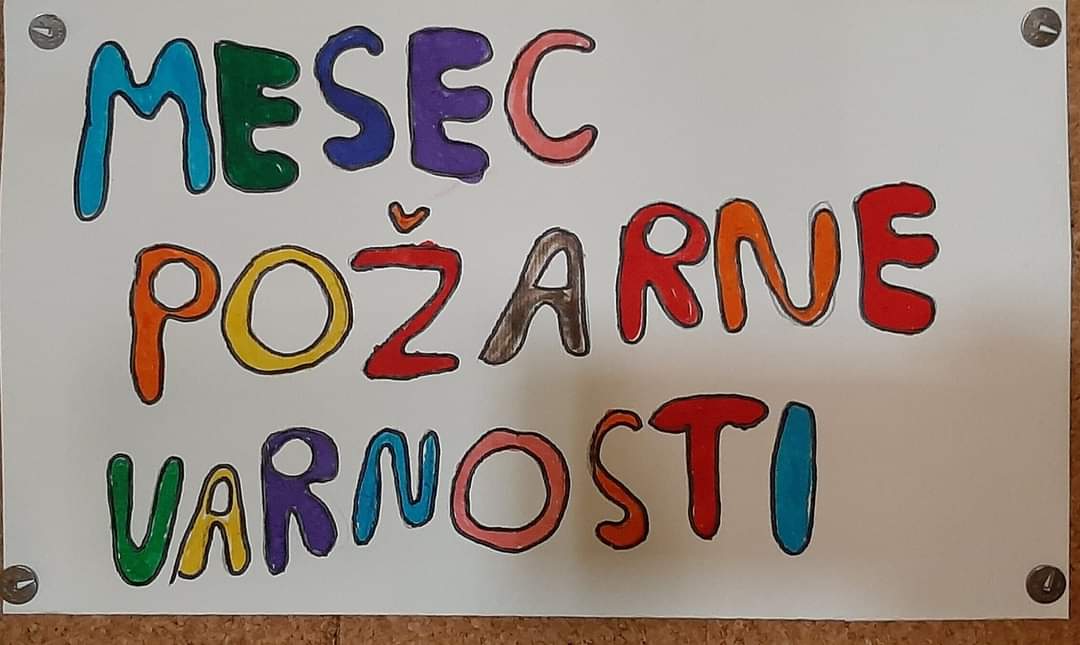 MESEC
POŽARNE
VARNOSTI